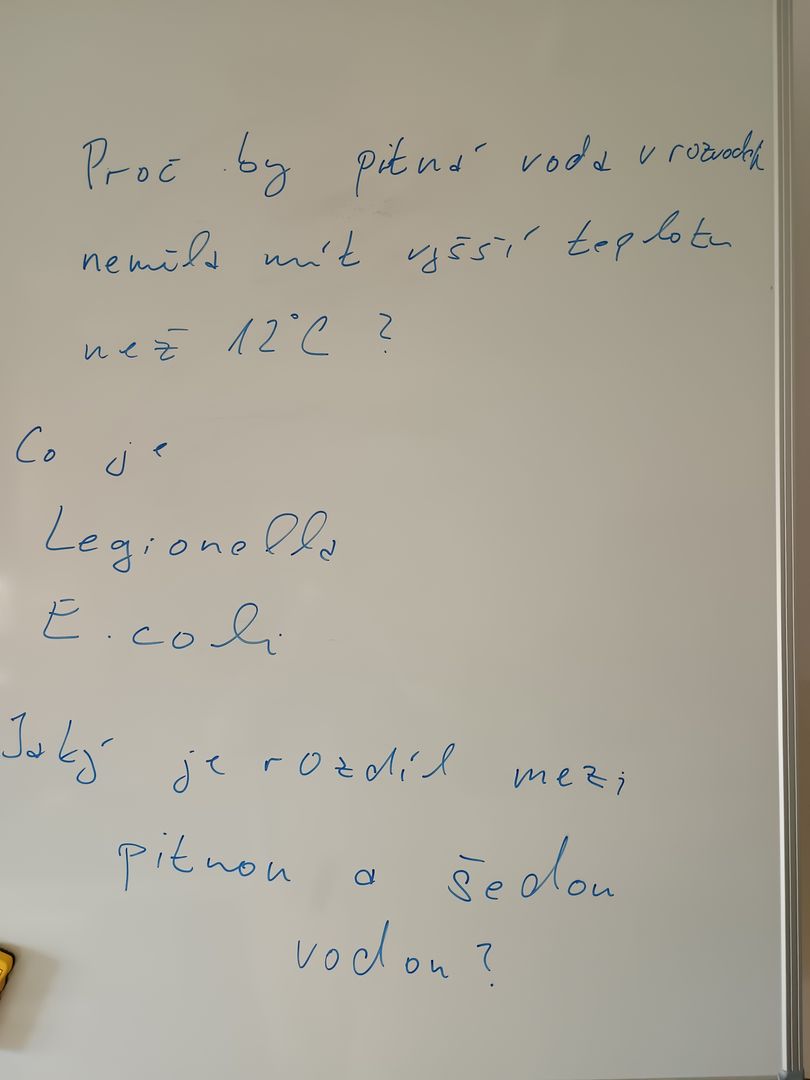 Proč by pitná voda v rozvodech
neměla mít vyšší teplotu
než 12°C ?
Co je
Legionella
E. coli
Jaký je rozdíl mezi
pitnou a šedou
vodou?